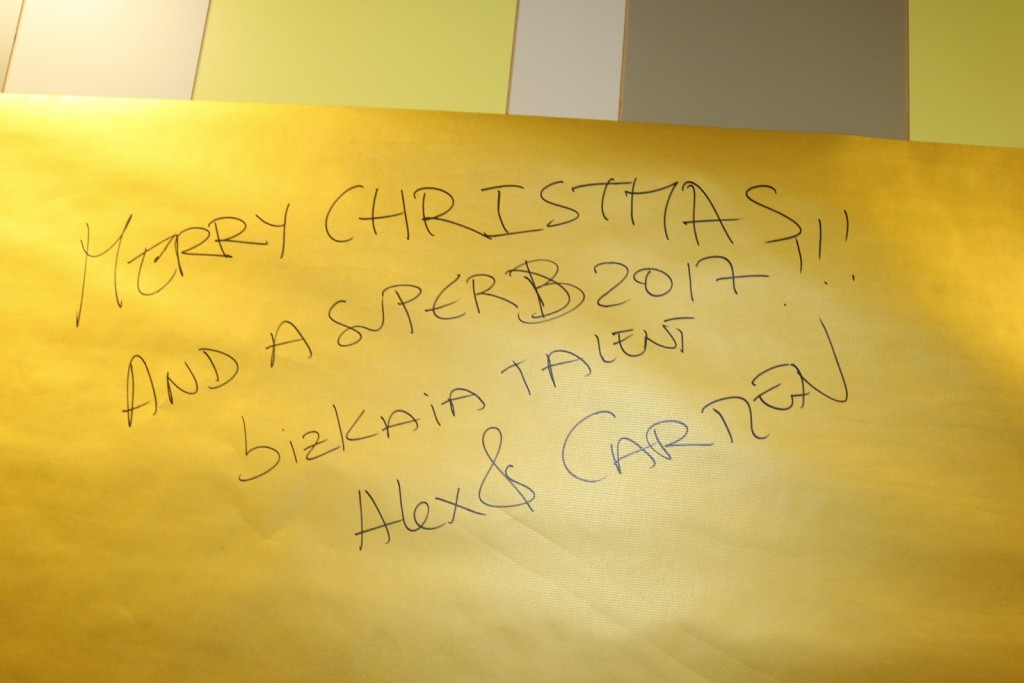 MERRY CHRISTMAS!!!
AND A SUPERB 2017
bizkaia TALENT
Alex & CARMEN